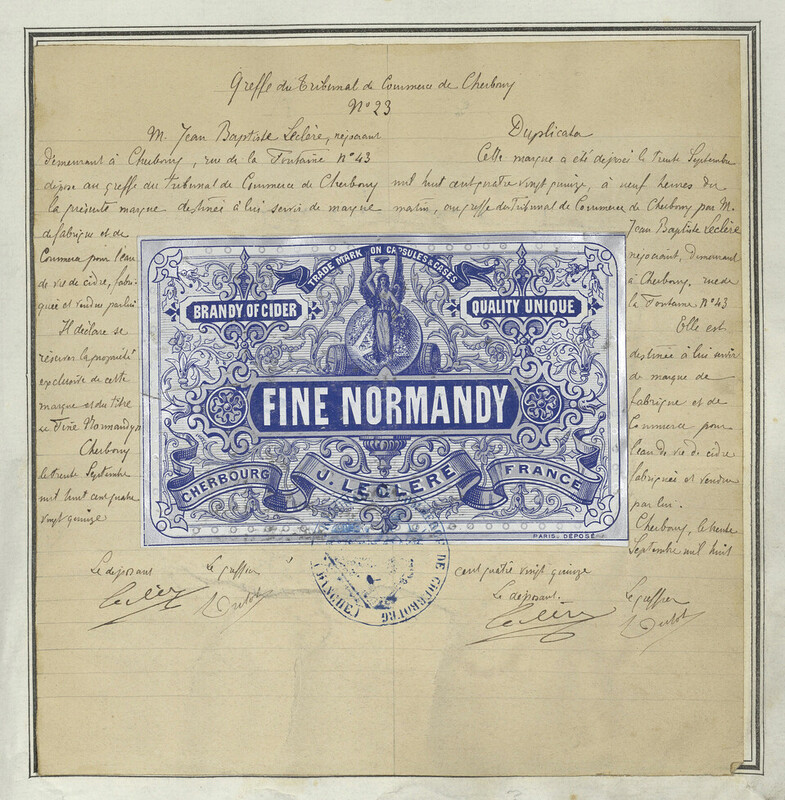 Greffe du Tribunal de Commerce de Cherbourg
N° 23
M. Jean Baptiste Leclère, négociant
demeurant à Cherbourg, rue de la Fontaine N° 43
dépose au greffe du Tribunal de Commerce de Cherbourg
la présente marque destinée à lui servir de marque
de fabrique et de
Commerce pour l'eau
de vie de cidre, fabri-
quée et vendue par lui
Il déclare se
réserver la propriété
exclusive de cette
marque et du titre
Fine Normandy
Cherbourg
le trente Septembre
mil huit cent quatre
vingt quinze
Le déposant
Leclère
Le greffier
Duplicata
Cette marque a été déposée le trente Septembre
mil huit cent quatre vingt quinze, à neuf heures du
matin, au greffe du Tribunal de Commerce de Cherbourg par M.
Jean Baptiste Leclère
négociant, demeurant
à Cherbourg, rue de
la Fontaine N° 43
Elle est
destinée à lui servir
de marque de
fabrique et de
Commerce pour
l'eau de vie de cidre
fabriquée et vendue
par lui.
Cherbourg, le trente
Septembre mil huit
cent quatre vingt quinze
Le déposant.
Leclère
Le greffier
TRADE MARK ON CAPSULES & CASES
BRANDY OF CIDER
QUALITY UNIQUE
FINE NORMANDY
CHERBOURG
J. LECLERE
FRANCE
PARIS. DÉPOSÉ
DE CHERBOURG
(MANCHE)